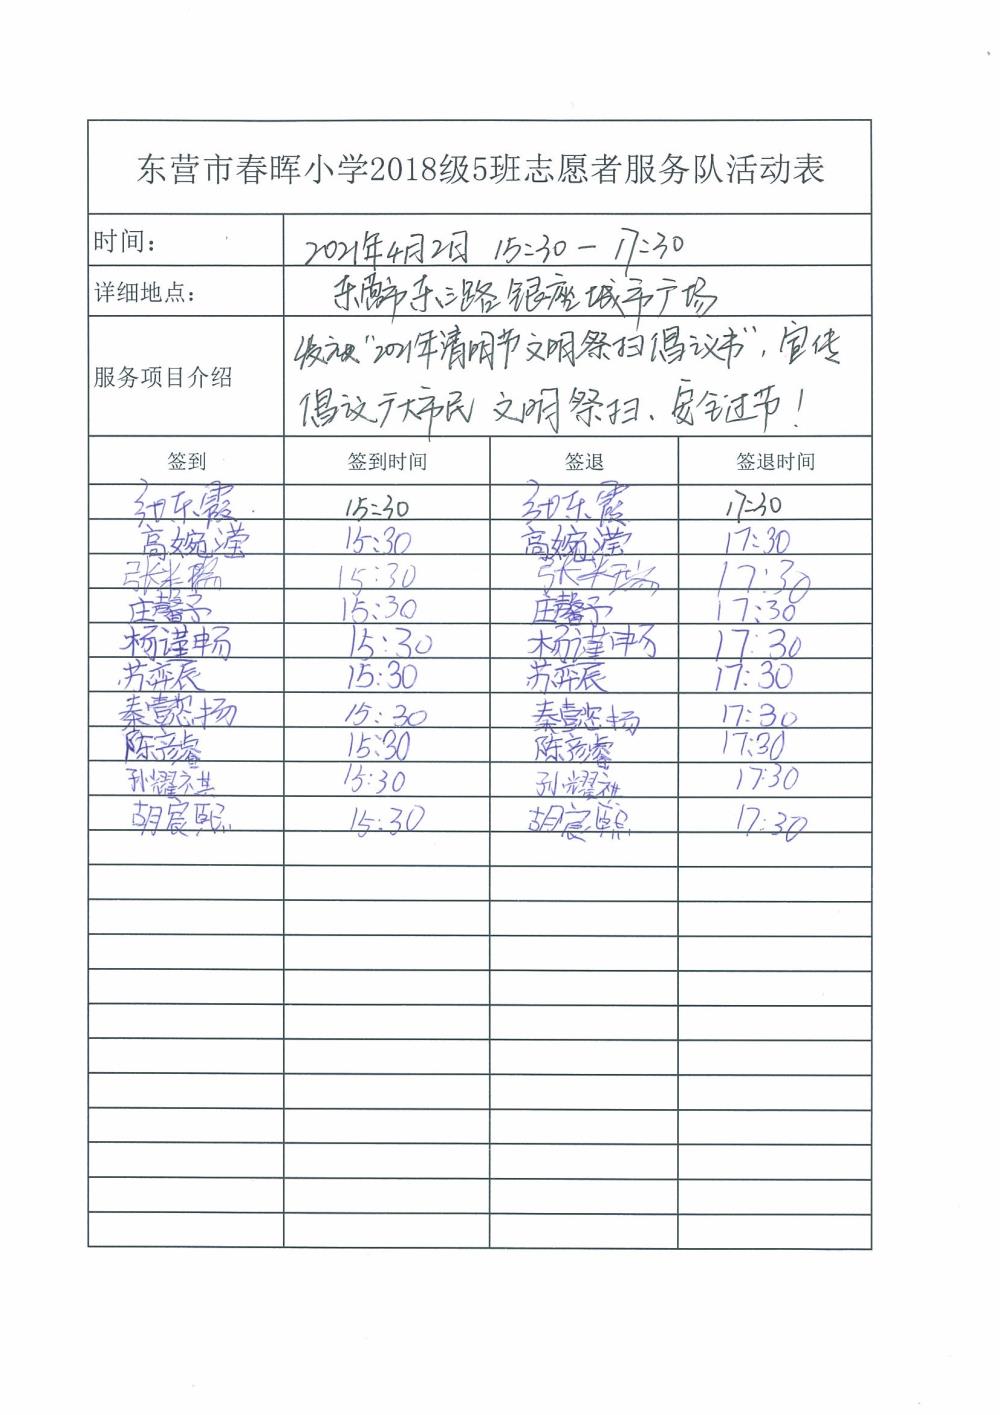 东营市春晖小学2018级5班志愿者服务队活动表
时间： 2021年4月2日 15:30－17:30
详细地点： 东营市东三路银座城市广场
服务项目介绍
发放"2021年清明节文明祭扫倡议书"，宣传
倡议广大市民 文明祭扫、安全过节！
签到 签到时间 签退 签退时间
东霞 15:30 东霞 17:30
高婉滢 15:30 高婉滢 17:30
张米 15:30 张米 17:30
庄馨予 15:30 庄馨予 17:30
杨谨畅 15:30 杨谨畅 17:30
苏弈辰 15:30 苏弈辰 17:30
秦懿扬 15:30 秦懿扬 17:30
陈彦睿 15:30 陈彦睿 17:30
孙耀祺 15:30 孙耀祺 17:30
胡宸熙 15:30 胡宸熙 17:30